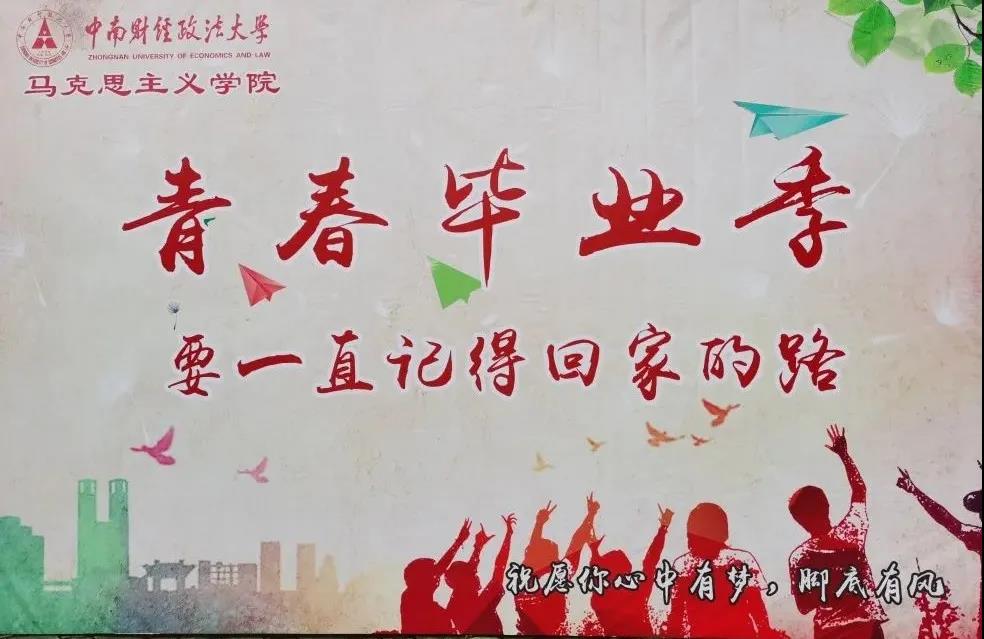 中南财经政法大学
ZHONGNAN UNIVERSITY OF ECONOMICS AND LAW
马克思主义学院
青春毕业季
要一直记得回家的路
祝愿你心中有梦，脚底有风